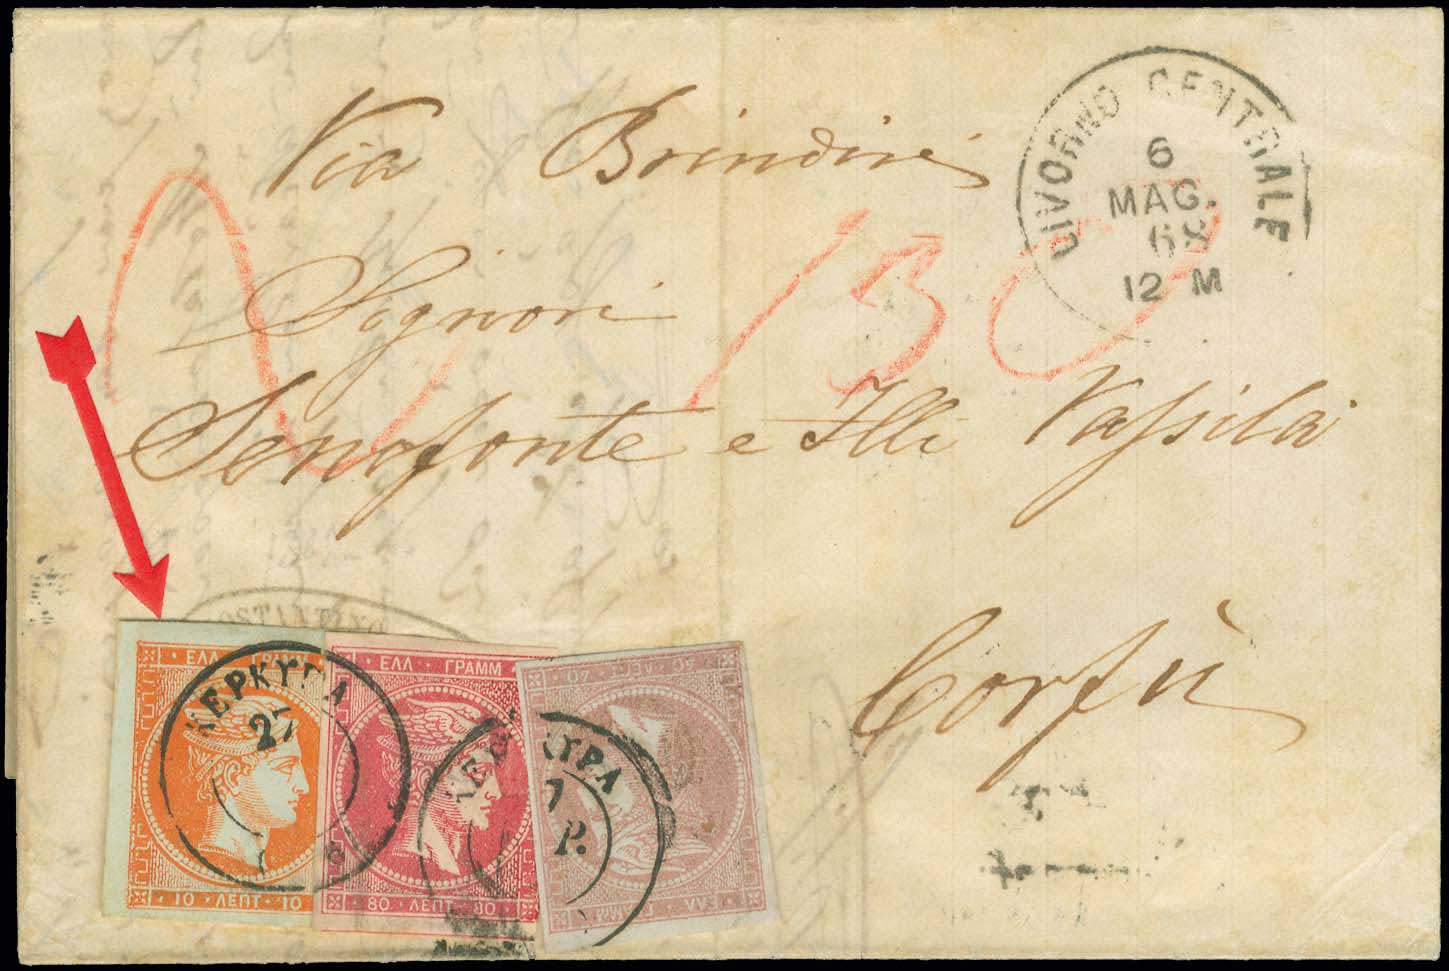 Via Brindisi
LIVORNO CENTRALE
6
MAG.
68
12 M
130
Signori
Senofonte e Flli Vassila
Corfù
ΕΛΛ ΓΡΑΜΜ
10 ΛΕΠΤ 10
ΚΕΡΚΥΡΑ
27
ΕΛΛ ΓΡΑΜΜ
80 ΛΕΠΤ 80
ΚΕΡΚΥΡΑ
7
Ρ.
ΕΛΛ ΓΡΑΜΜ
40 ΛΕΠΤ 40